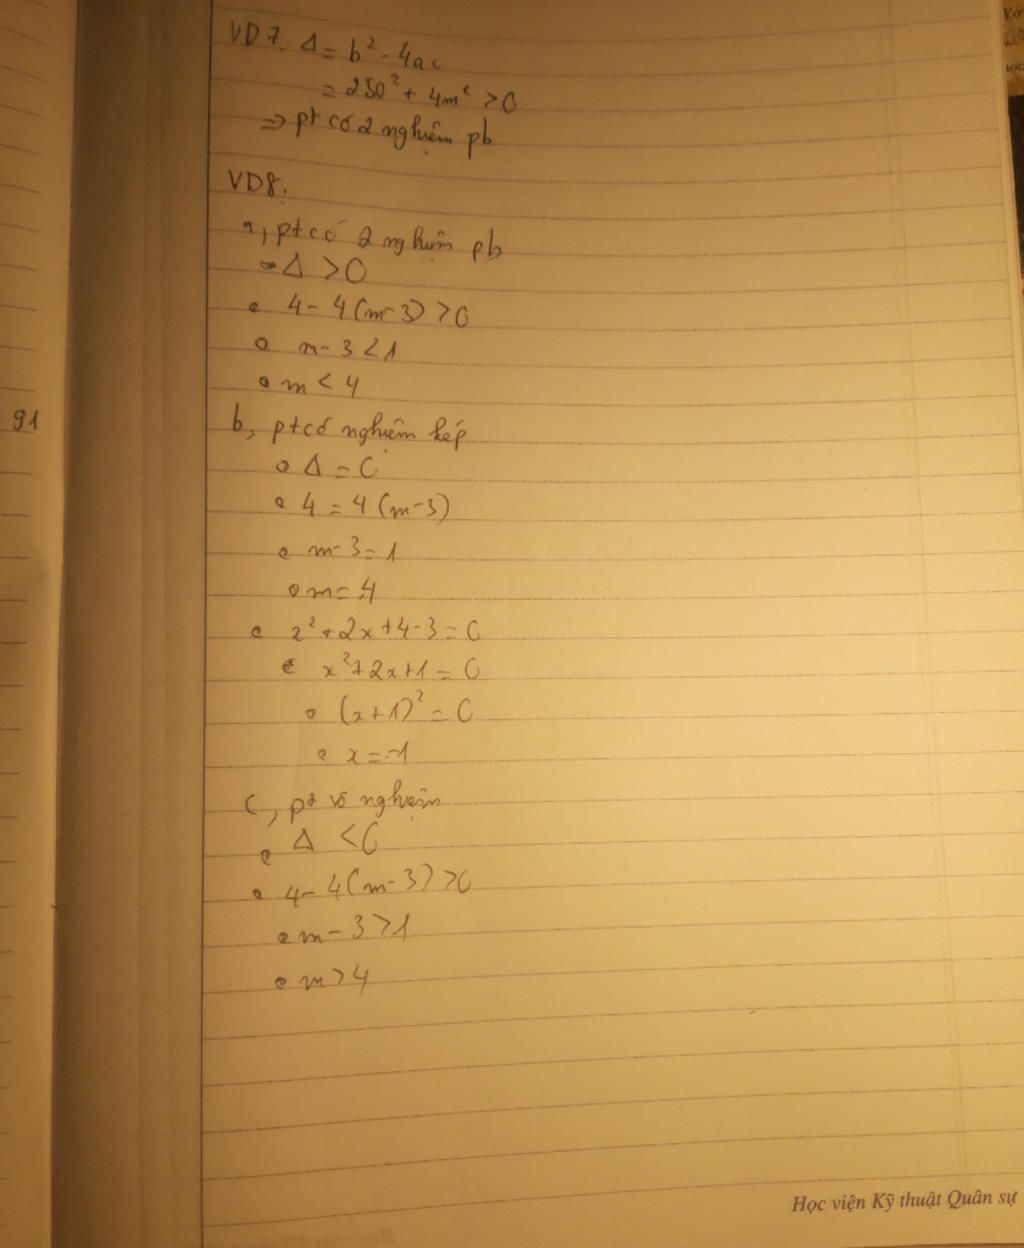 VD7. Δ = b² - 4ac
= 250² + 4m² > 0
⇒ pt có 2 nghiệm pb
VD8.
a, pt có 2 nghiệm pb
Δ > 0
4 - 4(m-3) > 0
m - 3 < 1
m < 4
91
b, pt có nghiệm kép
Δ = 0
4 = 4(m-3)
m - 3 = 1
m = 4
x² + 2x + 4 - 3 = 0
x² + 2x + 1 = 0
(x+1)² = 0
x = -1
c, pt vô nghiệm
Δ < 0
4 - 4(m-3) > 0
m - 3 > 1
m > 4
Học viện Kỹ thuật Quân sự